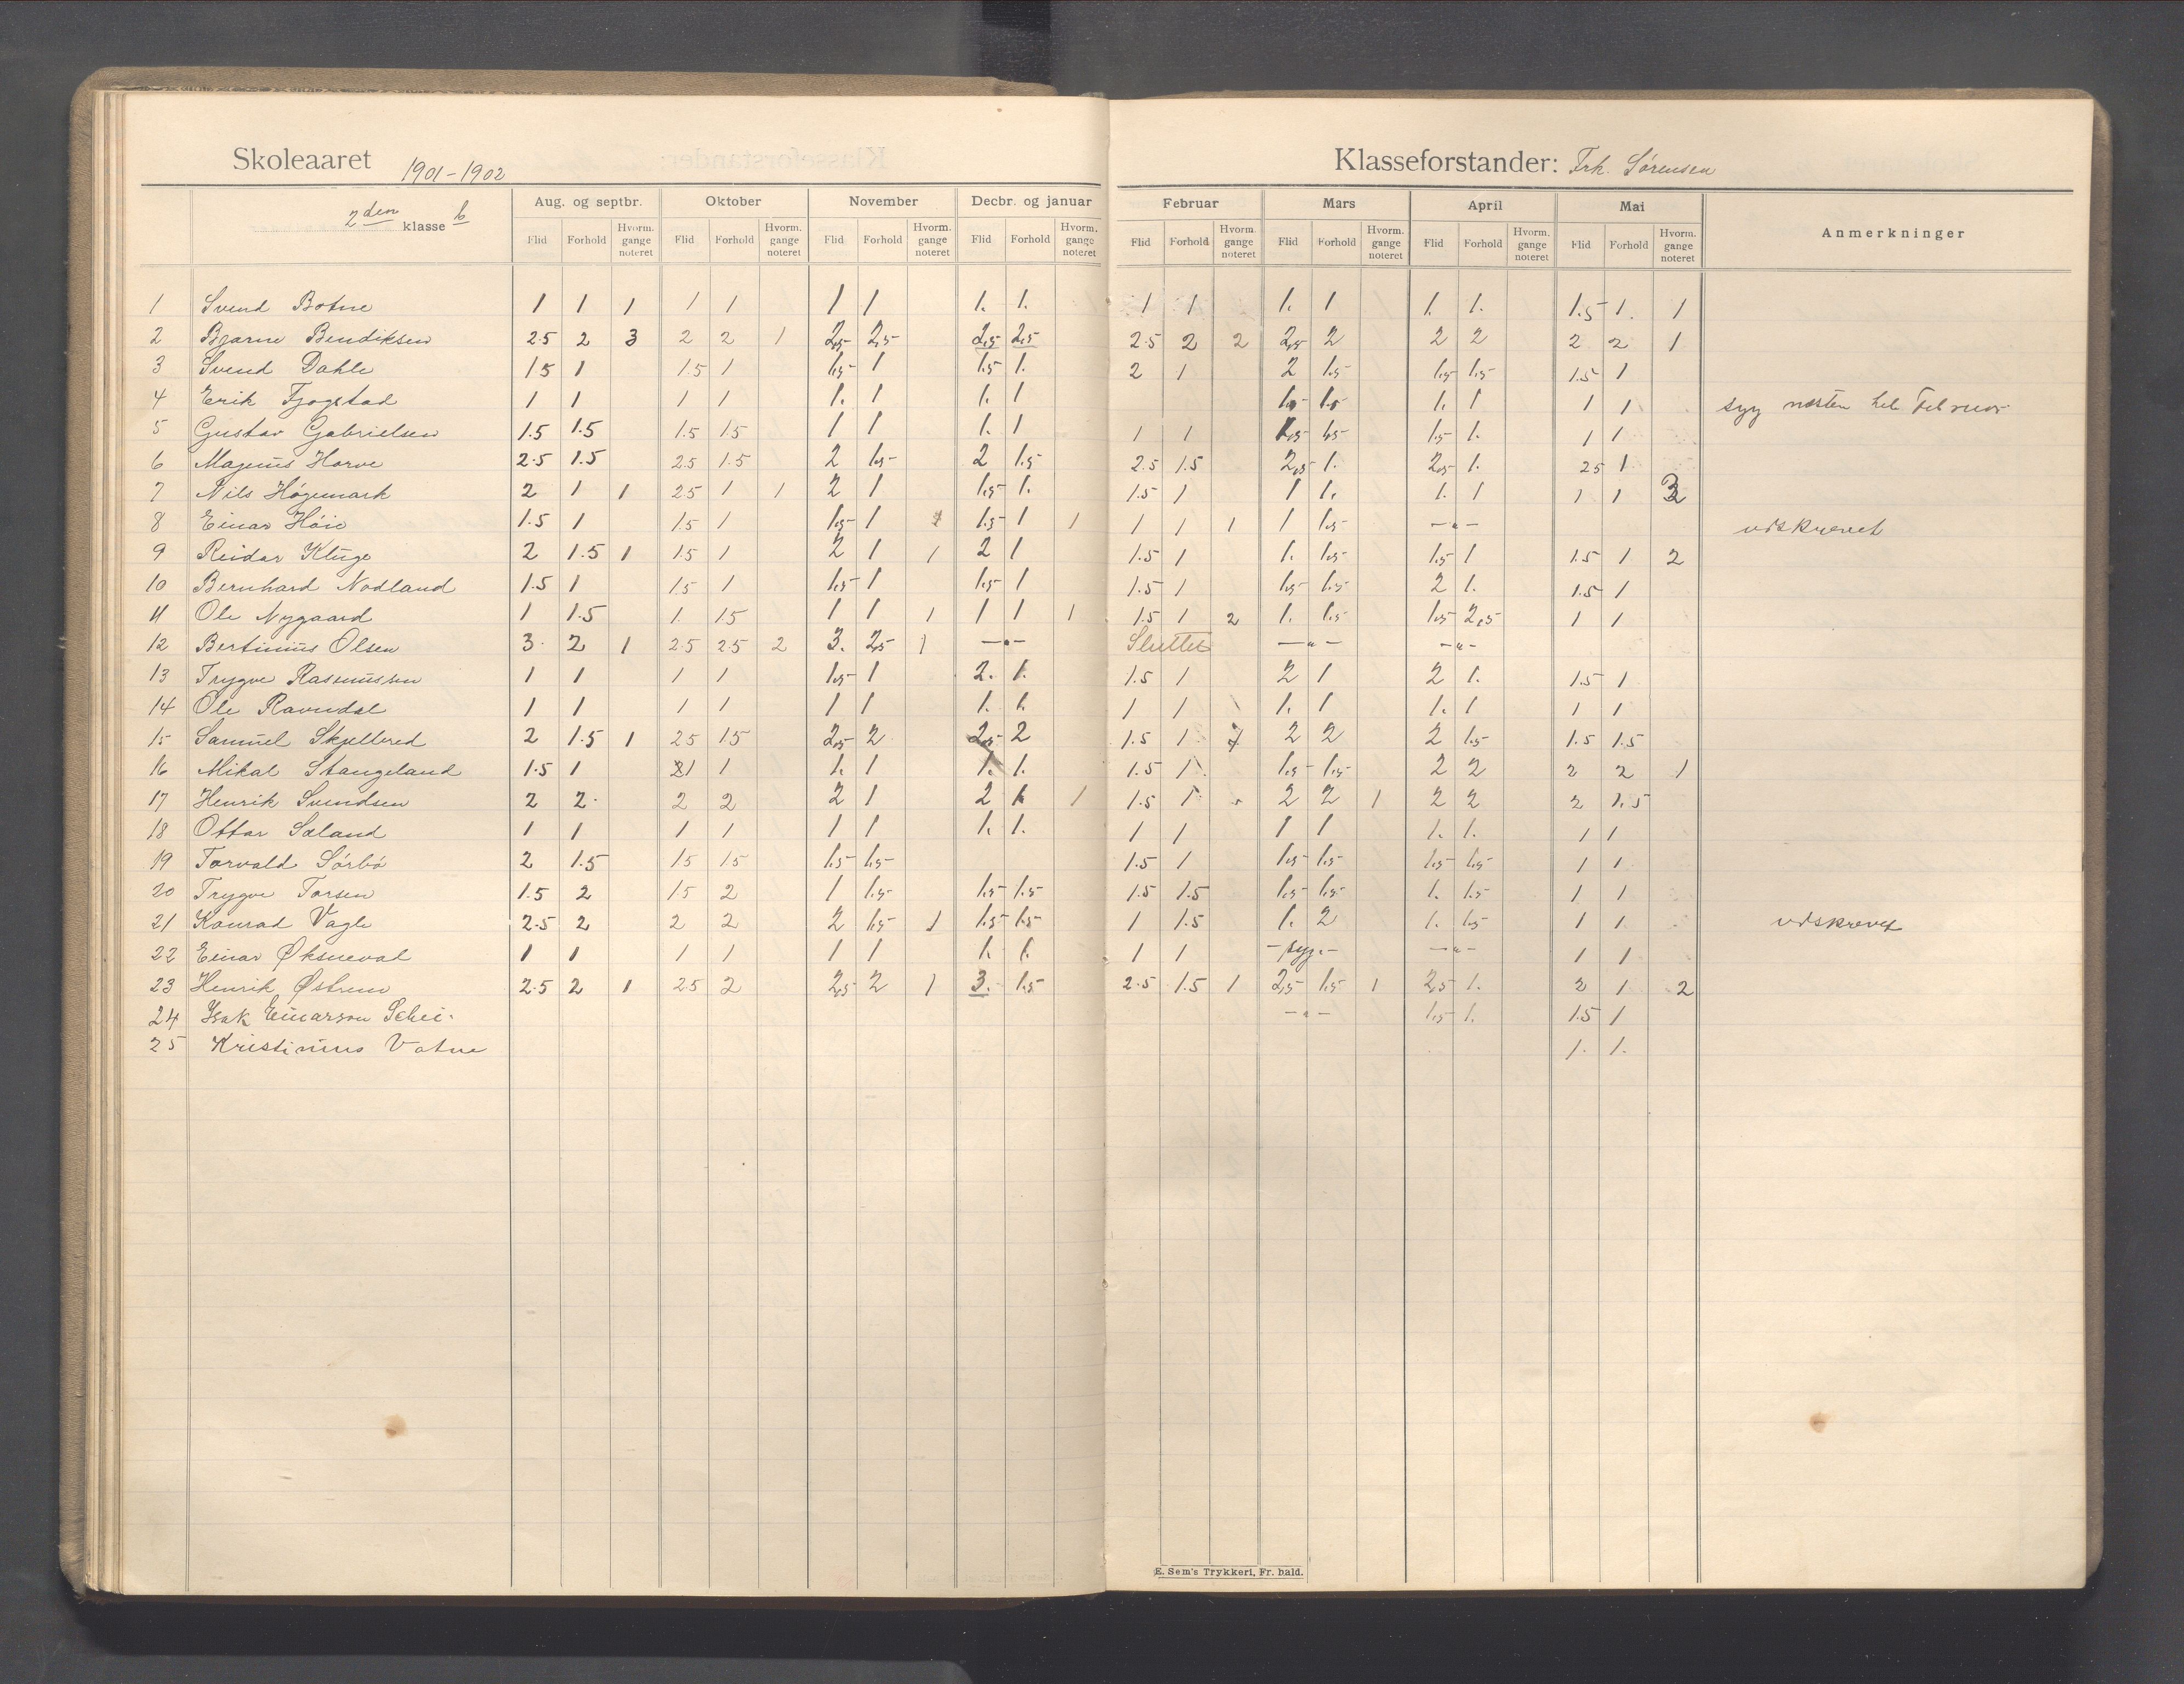 Skoleaaret 1901-1902 Klasseforstander: Frk. Sørensen
2den klasse b Aug. og septbr. Oktober November Decbr. og januar Februar Mars April Mai Anmerkninger
Flid Forhold Hvorm. gange noteret Flid Forhold Hvorm. gange noteret Flid Forhold Hvorm. gange noteret Flid Forhold Hvorm. gange noteret Flid Forhold Hvorm. gange noteret Flid Forhold Hvorm. gange noteret Flid Forhold Hvorm. gange noteret Flid Forhold Hvorm. gange noteret
1 Svend Botne 1 1 1 1 1 1 1 1. 1. 1 1 1. 1 1. 1. 1.5 1. 1
2 Bjarne Bendiksen 2.5 2 3 2 2 1 2,5 2,5 2,5 2,5 2.5 2 2 2,5 2 2 2 2 2 1
3 Svend Dahle 1 5 1 1.5 1 1,5 1 1,5 1. 2 1 2 1,5 1,5 1,5 1.5 1
4 Erik Fjogstad 1 1 1 1 1. 1 1. 1 1,5 1,5 1. 1 1 1 syg næsten hele Februar
5 Gustav Gabrielsen 1.5 1.5 1.5 1.5 1 1 1. 1 1 1 1,5 1,5 1,5 1. 1 1
6 Magnus Horve 2.5 1.5 2.5 1.5 2 1,5 2 1,5 2.5 1.5 2,5 1. 2,5 1. 2 5 1
7 Nils Høgemark 2 1 1 2 5 1 1 2 1 1,5 1. 1.5 1 1 1. 1. 1 1 1
8 Einar Høie 1.5 1 1.5 1 1,5 1 1,5 1 1 1 1 1 1 1,5 -"- udskrevet
9 Reidar Kluge 2 1.5 1 1.5 1 2 1 1 2 1 1.5 1 1. 1,5 1,5 1 1.5 1 2
10 Bernhard Nodland 1.5 1 1.5 1 1,5 1 1,5 1 1.5 1 1,5 1,5 2 1. 1.5 1
11 Ole Nygaard 1 1.5 1. 1.5 1 1 1 1 1 1 1.5 1 2 1. 1,5 1,5 2,5 1 1
12 Bertinius Olsen 3. 2 1 2 5 2.5 2 3. 2,5 1 -"- Sluttet -"- -"-
13 Trygve Rasmussen 1 1 1 1 1,5 1 2. 1. 1.5 1 2 1 2 1. 1.5 1
14 Ole Ravndal 1 1 1 1 1 1 1. 1. 1 1 1. 1 1. 1 1 1
15 Samuel Skjelbred 2 1.5 1 2 5 1 5 2,5 2 2,5 2 1.5 1 2 2 2 1,5 1.5 1.5
16 Mikal Stangeland 1.5 1 1 1 1. 1 1. 1. 1.5 1 1,5 1,5 2 2 2 2 1
17 Henrik Svendsen 2 2. 2 2 2 1 2 1. 1 1.5 1 2 2 1 2 2 2 1.5
18 Ottar Sæland 1 1 1 1 1 1 1. 1. 1 1 1 1 1. 1. 1 1
19 Torvald Sørbø 2 1.5 1 5 1 5 1,5 1,5 1.5 1 1,5 1,5 1,5 1,5 1 1
20 Trygve Torsen 1.5 2 1 5 2 1 1,5 1,5 1,5 1.5 1.5 1,5 1,5 1. 1,5 1 1
21 Konrad Vagle 2.5 2 2 2 2 1,5 1 1,5 1,5 1 1.5 1. 2 1. 1,5 1 1 udskrevet
22 Einar Øksneval 1 1 1 1 1 1 1. 1. 1 1 -syg- -"- 1 1
23 Henrik Østrem 2.5 2 1 2 5 2 2,5 2 1 3. 1,5 2.5 1.5 1 2,5 1,5 1 2,5 1. 2 1 2
24 Isak Einarson Schei -"- 1,5 1. 1.5 1
25 Kristinius Votne 1. 1.
E. Sem's Trykkeri, Fr. hald.